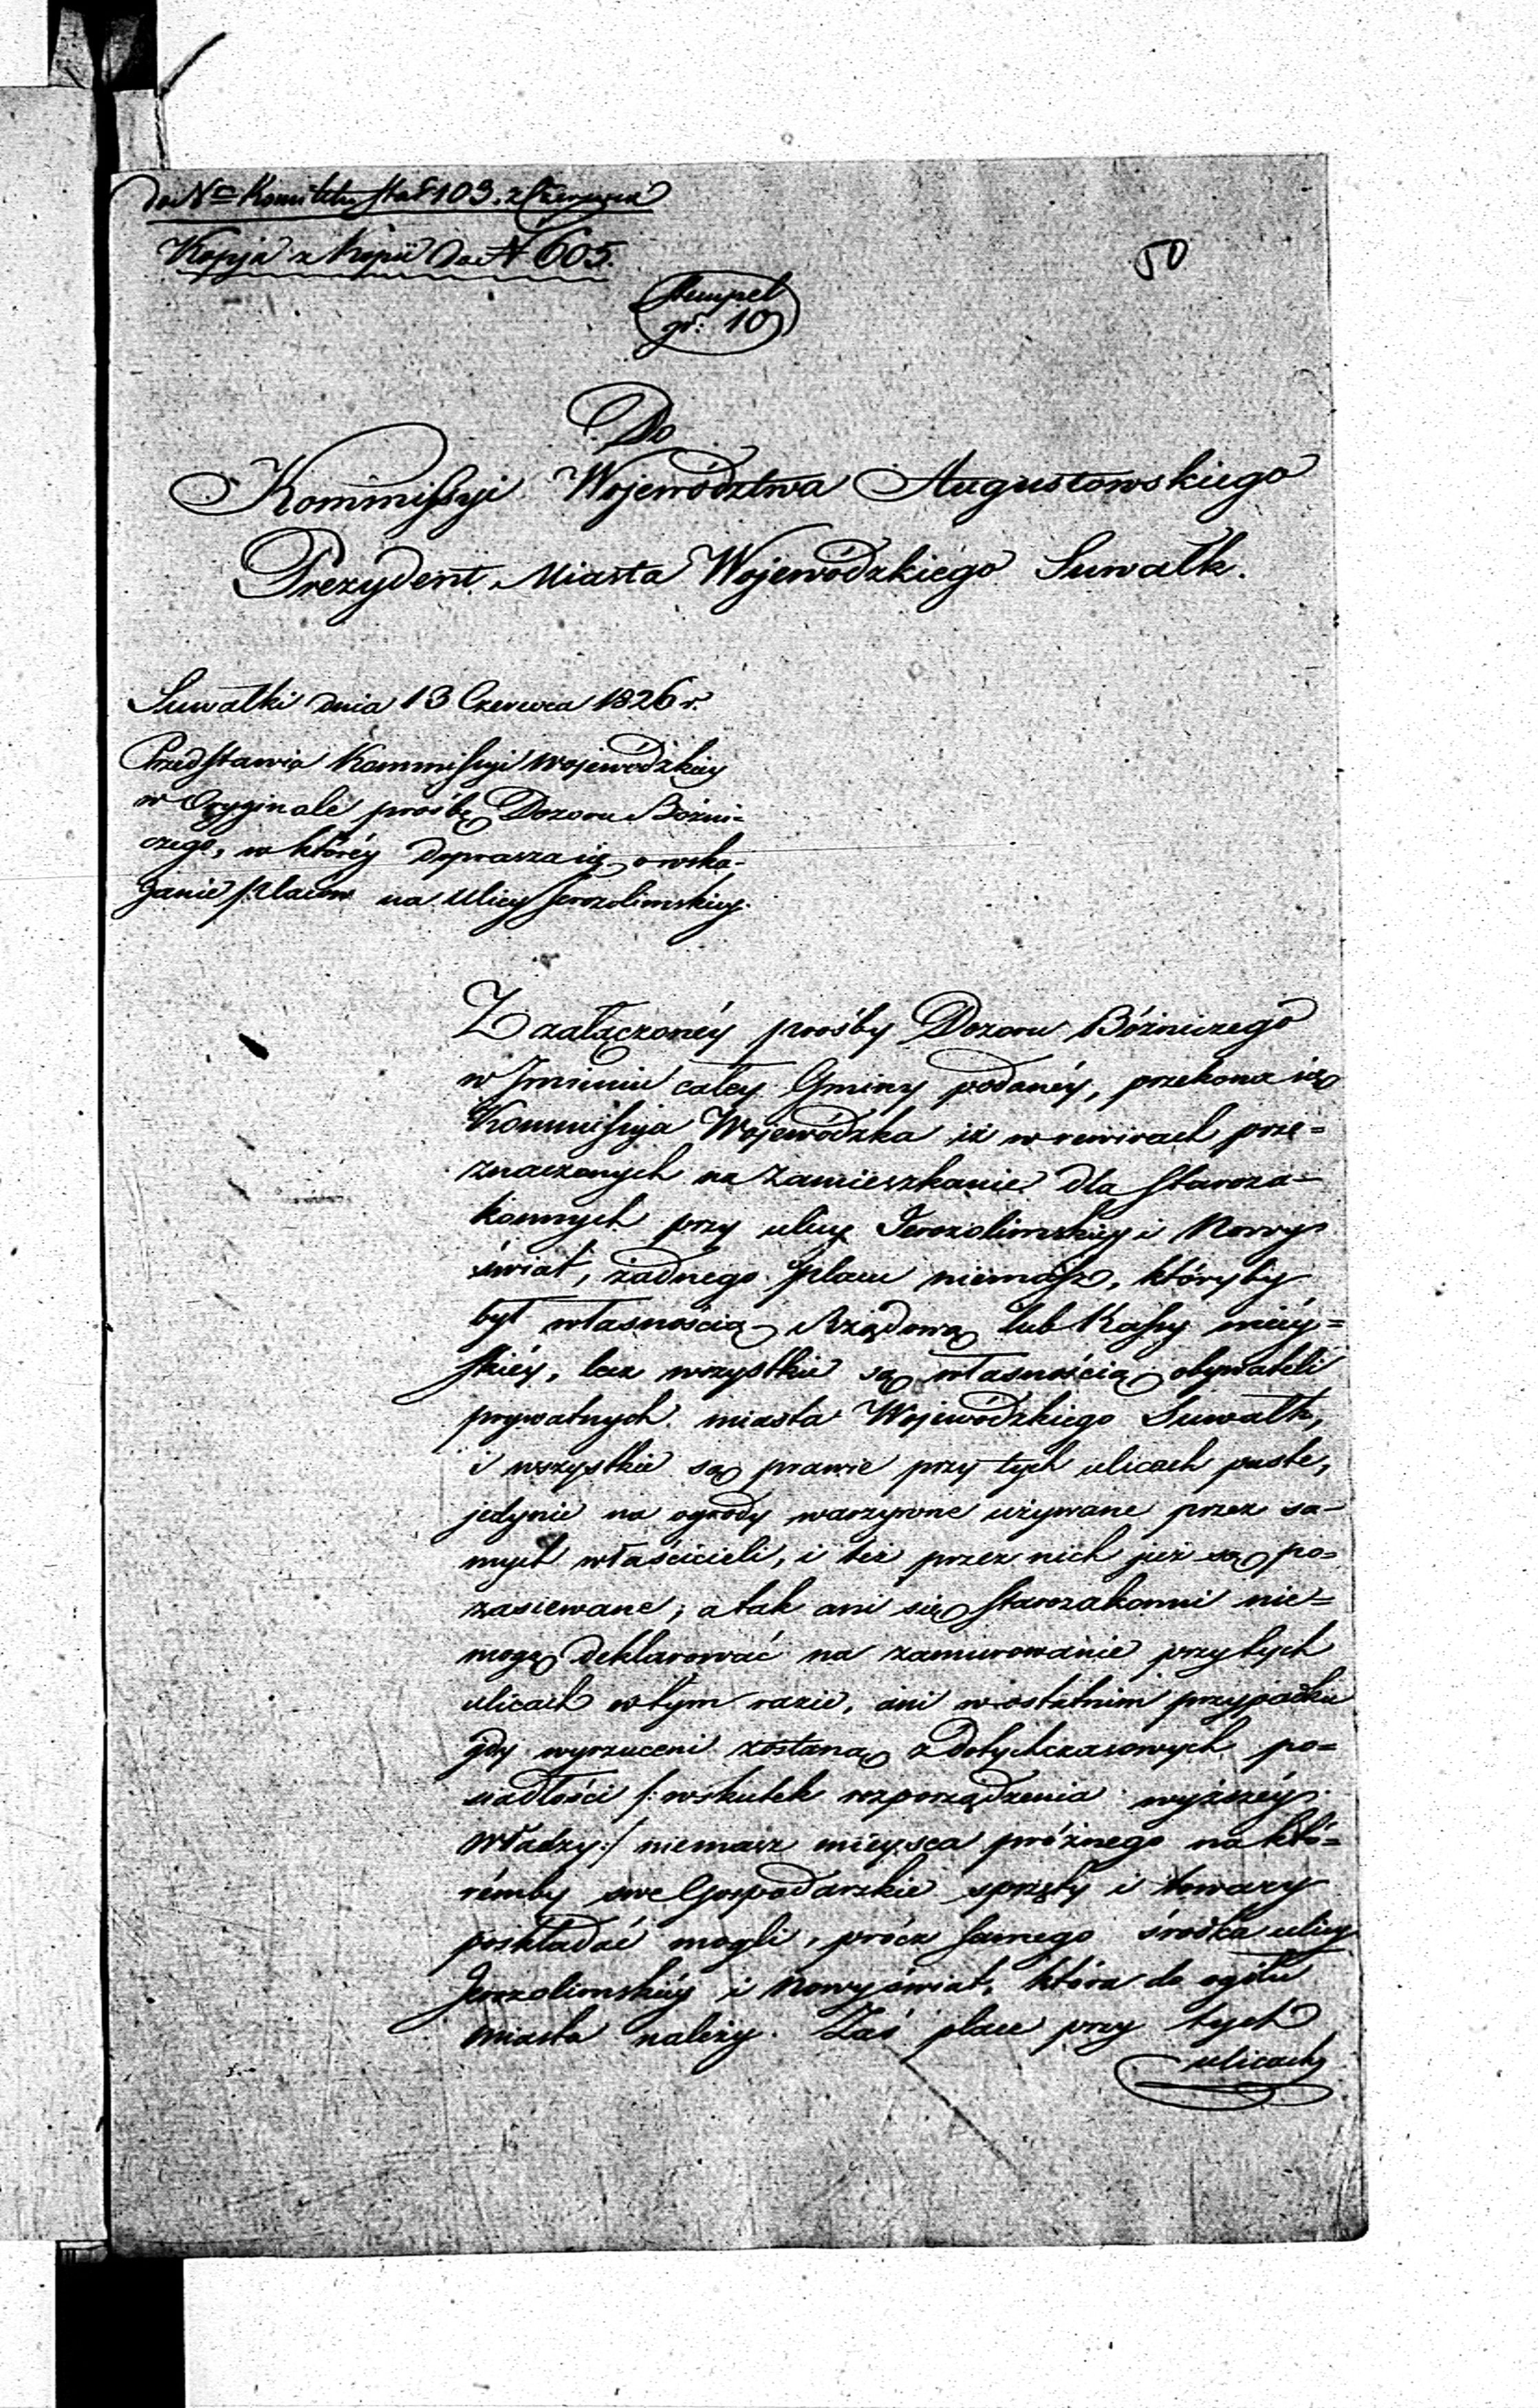 do No Komitetu 103. z Czerwca
Kopja z Kopii do N 605.
50
stempel
gr: 10
Do
Kommissyi Województwa Augustowskiego
Prezydent Miasta Wojewódzkiego Suwałk.
Suwałki dnia 13 Czerwca 1826 r.
Przedstawia Kommissyi Wojewódzkiey
w Oryginale prośbę Dozoru Bóżni=
czego, w któréy doprasza się o wska-
zanie placów na Ulicy Jerozolimskiey.
Z załączonéy prośby Dozoru Bóżniczego
w Imieniu całey Gminy podanéy, przekona się
Kommissyja Wojewódzka iż w rewirach prze=
znaczonych na zamieszkanie dla Staroza=
konnych przy ulicy Jerozolimskiey i Nowy
świat, żadnego placu niemasz, któryby
był własnością Rządową lub Kassy miéy=
skiéy, lecz wszystkie są własnością obywateli
prywatnych miasta Wojewódzkiego Suwałk,
i wszystkie są prawie przy tych ulicach puste,
jedynie na ogrody warzywne używane przez sa=
mych właścicieli, i też przez nich już są po=
zasiewane; a tak ani się Starozakonni nie=
mogą deklarować na zamurowanie przy tych
ulicach w tym razie, ani w ostatnim przypadku
gdy wyrzuceni zostaną z dotychczasowych po=
siadłości /: wskutek rozporządzenia wyższéy
Władzy :/ niemasz mieysca próżnego na któ=
rémby swe Gospodarskie sprzęty i towary
poskładać mogli, prócz samego środka ulicy
Jerozolimskiéy i Nowy świat, która do ogółu
miasta należy. Zaś place przy tych
ulicach